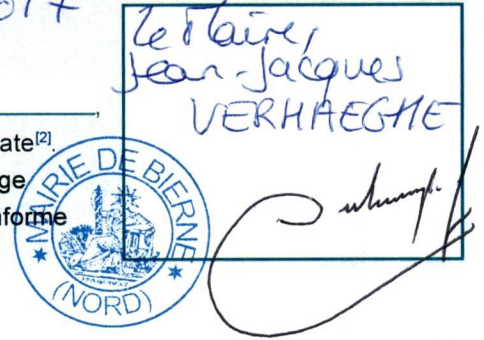 Le Maire,
Jean-Jacques
VERHAEGHE
,
ate[2].
ge
nforme
MAIRIE DE BIERNE
(NORD)